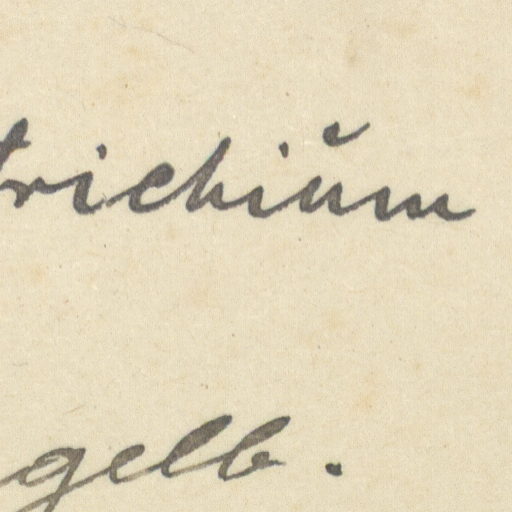 trichiŭm
gelb.